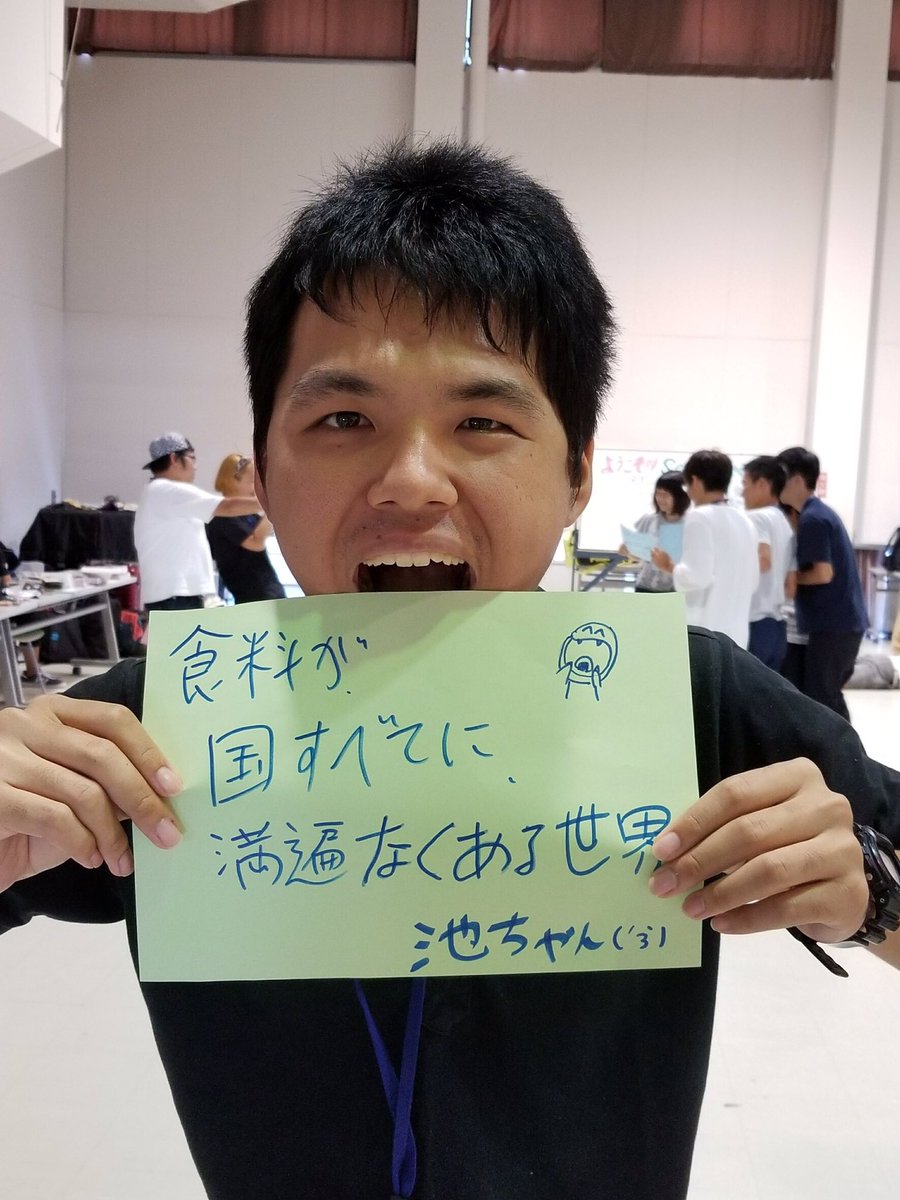 食料が、
国すべてに、
満遍なくある世界
池ちゃん('3')
ようこそ!!